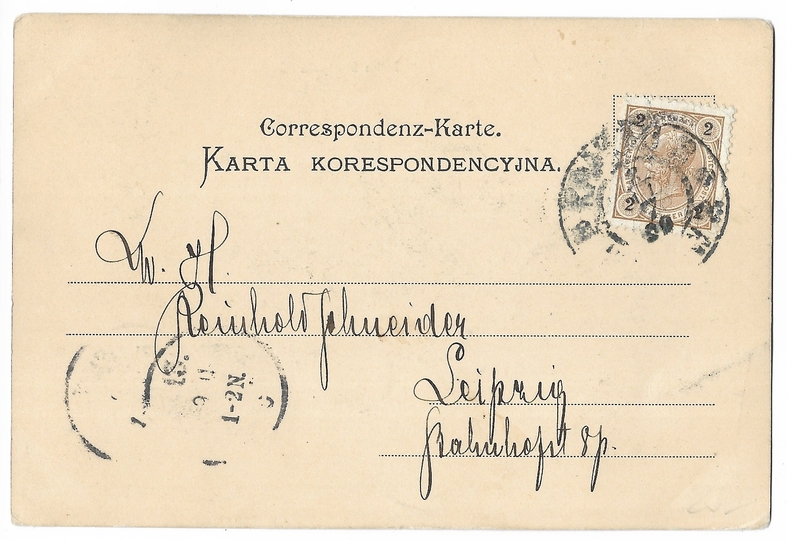 Correspondenz-Karte.
KARTA KORESPONDENCYJNA.
2 2
2 2
W. H.
Reinhold Schneider
Leipzig
Bahnhofst 8p.
1-2N.